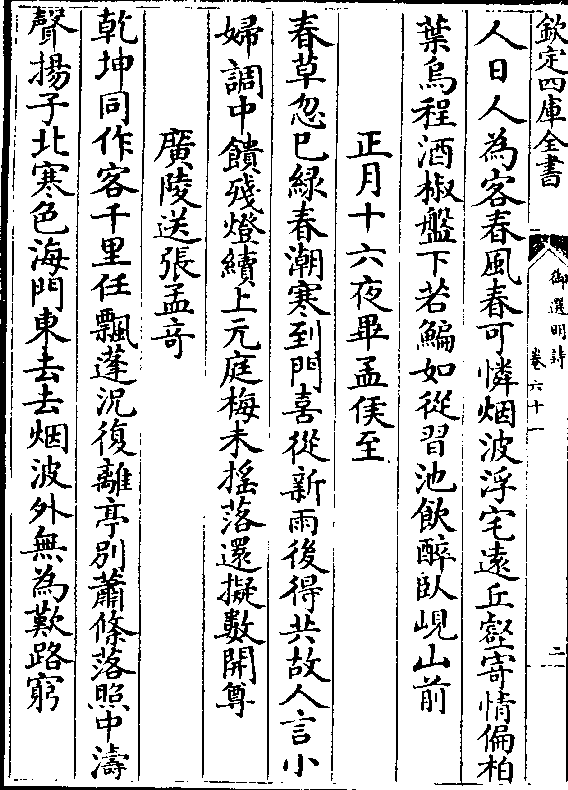 欽定四庫全書
御選明詩
卷六十一
二
人日人為客春風春可憐烟波浮宅遠丘壑寄情偏柏
葉烏程酒椒盤下若鯿如從習池飲醉臥峴山前
正月十六夜畢孟侯至
春草忽已綠春潮寒到門喜從新雨後得共故人言小
婦調中饋殘燈續上元庭梅未摇落還擬數開尊
廣陵送張孟竒
乾坤同作客千里任飄蓬況復離亭別蕭條落照中濤
聲揚子北寒色海門東去去烟波外無為歎路窮